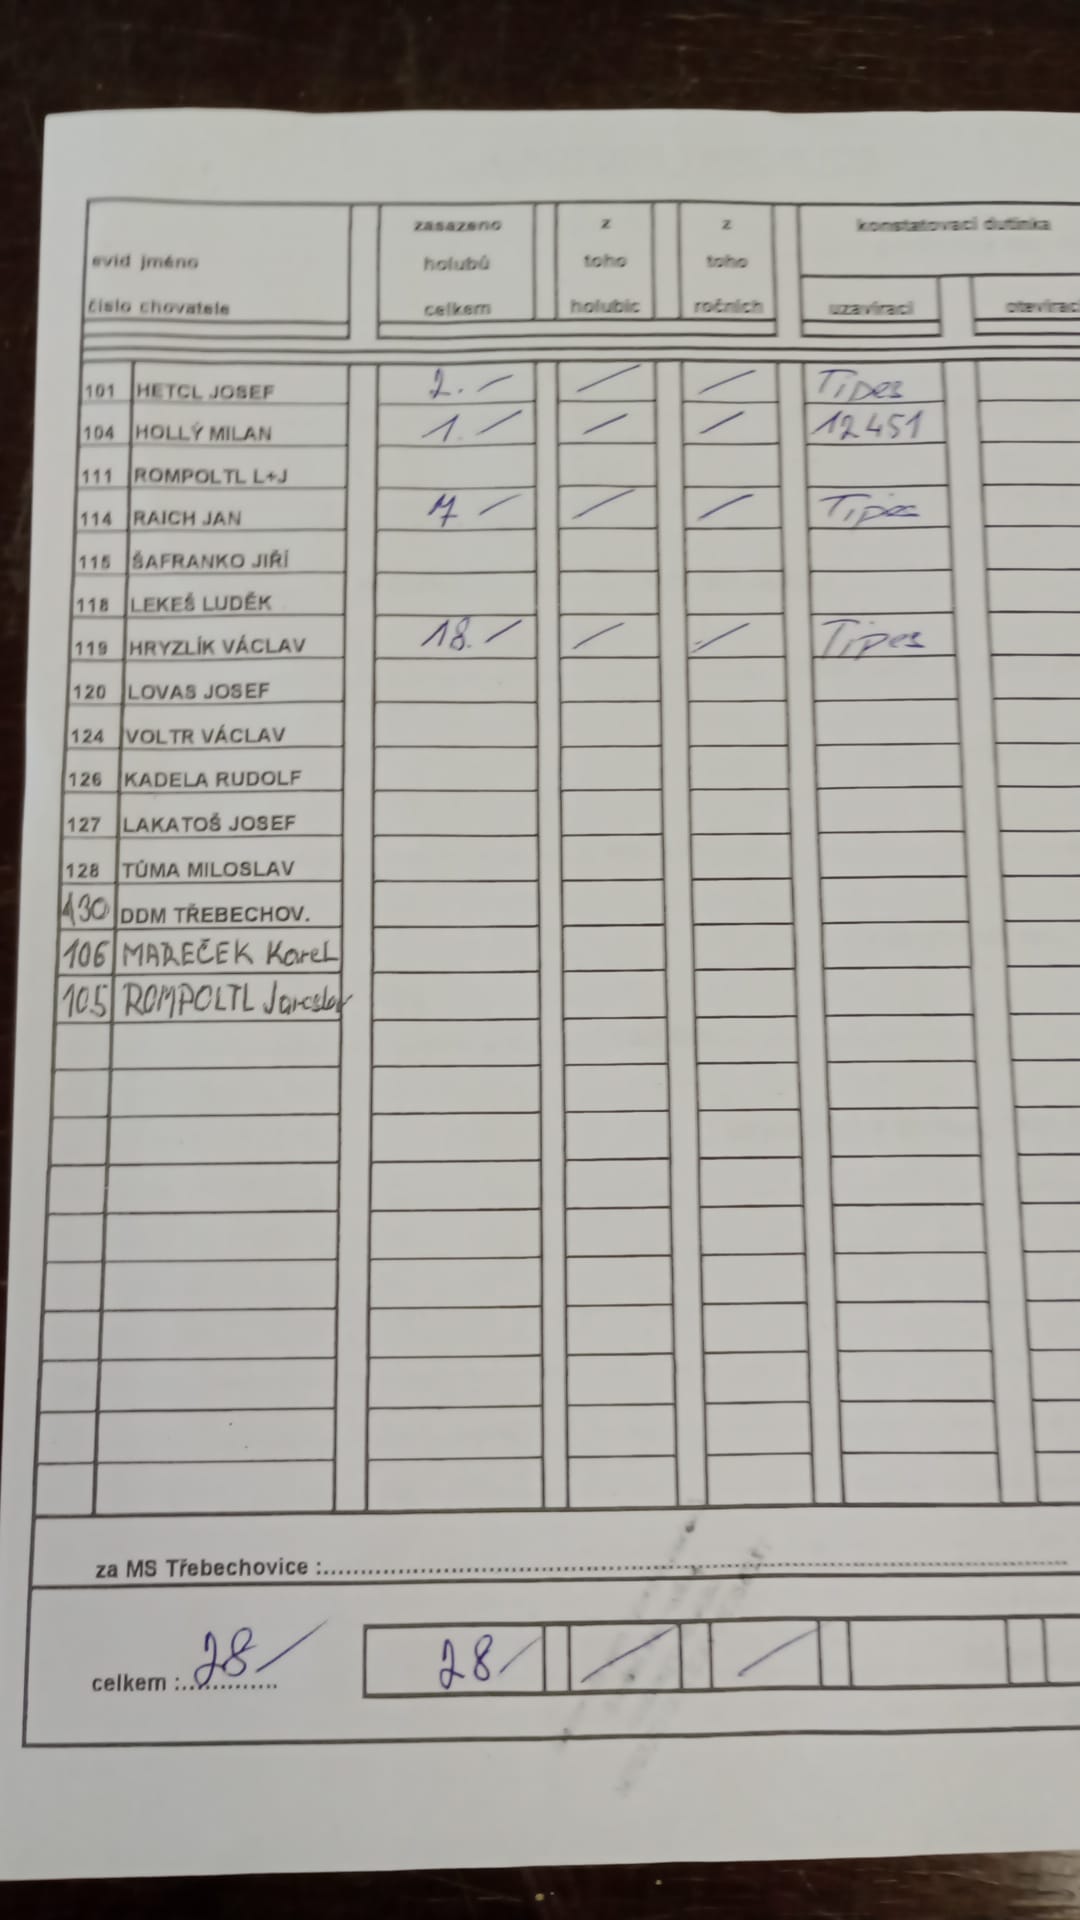 evid jméno
číslo chovatele
zasazeno
holubů
celkem
z
toho
holubic
z
toho
ročních
konstatovací dutinka
uzavírací
otevírací
101 HETCL JOSEF 2.- / / Tipes
104 HOLLÝ MILAN 1.- / / 12451
111 ROMPOLTL L+J
114 RAICH JAN 7 - / / Tipes
115 ŠAFRANKO JIŘÍ
118 LEKEŠ LUDĚK
119 HRYZLÍK VÁCLAV 18.- / / Tipes
120 LOVAS JOSEF
124 VOLTR VÁCLAV
126 KADELA RUDOLF
127 LAKATOŠ JOSEF
128 TŮMA MILOSLAV
130 DDM TŘEBECHOV.
106 MAREČEK Karel
105 ROMPOLTL Jaroslav
za MS Třebechovice :
celkem : 28/ 28/ / /